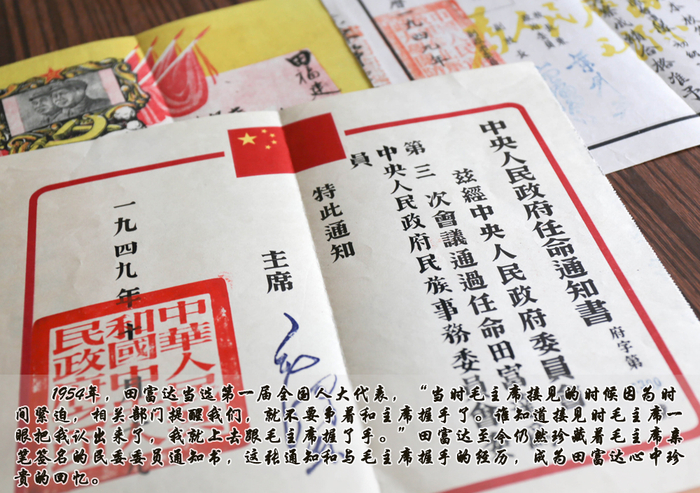 中央人民政府任命通知書 府字第
兹經中央人民政府委員
第三次會議通過任命田富
中央人民政府民族事務委員
員
特此通知
主席
一九四九年十
中華人
和國中
民政
田福建
一九四九年
1954年，田富达当选第一届全国人大代表，“当时毛主席接见的时候因为时
间紧迫，相关部门提醒我们，就不要争着和主席握手了。谁知道接见时毛主席一
眼把我认出来了，我就上去跟毛主席握了手。”田富达至今仍然珍藏着毛主席亲
笔签名的民委委员通知书，这张通知和与毛主席握手的经历，成为田富达心中珍
贵的回忆。